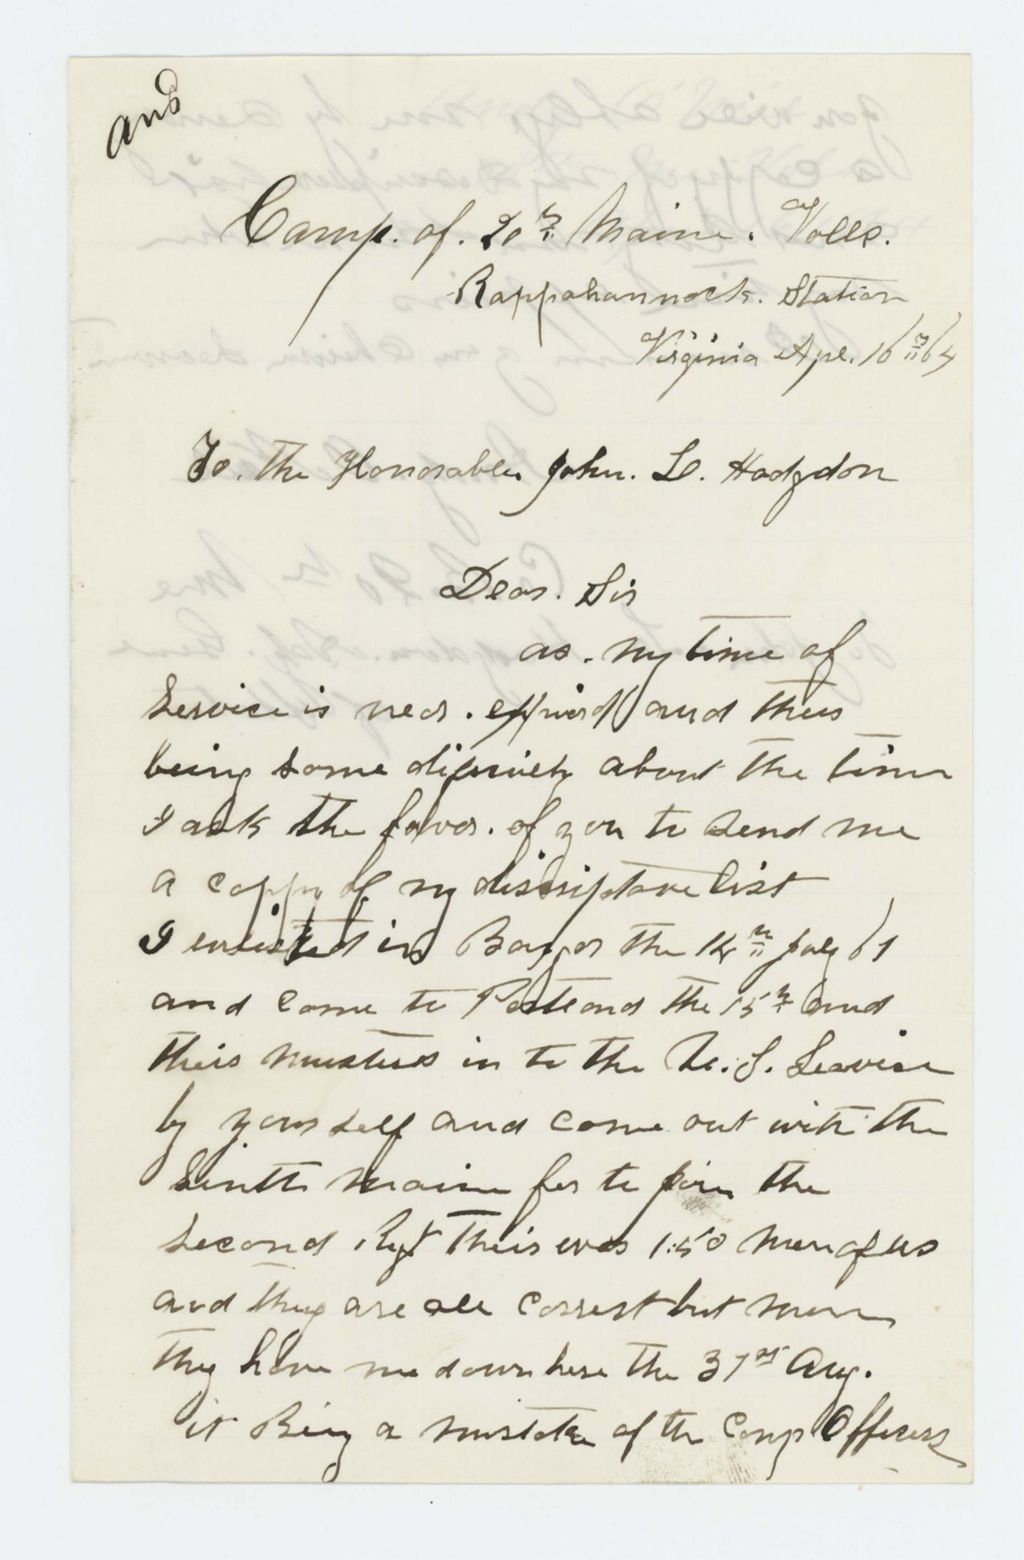 ans
Camp. of. 20th Maine. Volls.
Rappahannock. Station
Virginia Apl. 16th/64
To. the Honorable John. L. Hodgdon
Dear. Sir
as. my time of
Service is near. expired and thers
being some dificuiely about the time
I ask the favor. of you to Send me
a coppy of my discriptave list
I enlisted in Bangor the 14th July 61
and come to Portland the 15th and
theis musters in to the U. S. Service
by yourself and come out with the
Sixth Maine for to join the
Second Rgt Theis was 150 men of us
and they are all Correst but mine
they have me down here the 31st Aug.
it Being a mistake of the Comp Officers